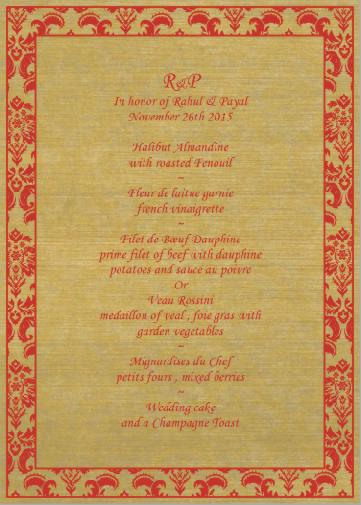 R&P
In honor of Rahul & Payal
November 26th 2015
Halibut Almandine
with roasted Fenouil
~
Fleur de laitue garnie
french vinaigrette
~
Filet de Bœuf Dauphine
prime filet of beef with dauphine
potatoes and sauce au poivre
Or
Veau Rossini
medaillon of veal , foie gras with
garden vegetables
~
Mignardises du Chef
petits fours , mixed berries
~
Wedding cake
and a Champagne Toast